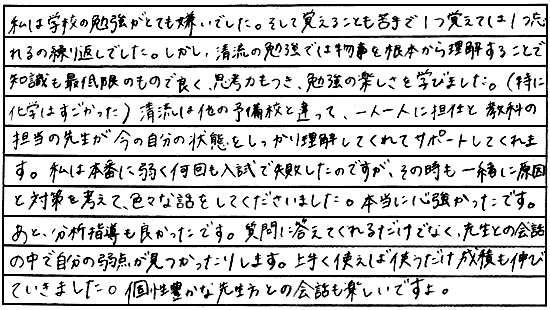 私は学校の勉強がとても嫌いでした。そして覚えることも苦手で1つ覚えては1つ忘
れるの繰り返しでした。しかし、清流の勉強では物事を根本から理解することで
知識も最低限のもので良く、思考力もつき、勉強の楽しさを学びました。(特に
化学はすごかった)清流は他の予備校と違って、一人一人に担任と教科の
担当の先生が今の自分の状態をしっかり理解してくれてサポートしてくれま
す。私は本番に弱く何回も入試で失敗したのですが、その時も一緒に原因
と対策を考えて、色々な話をしてくださいました。本当に心強かったです。
あと、分析指導も良かったです。質問に答えてくれるだけでなく、先生との会話
の中で自分の弱点が見つかったりします。上手く使えば使うだけ成績も伸び
ていきました。個性豊かな先生方との会話も楽しいですよ。